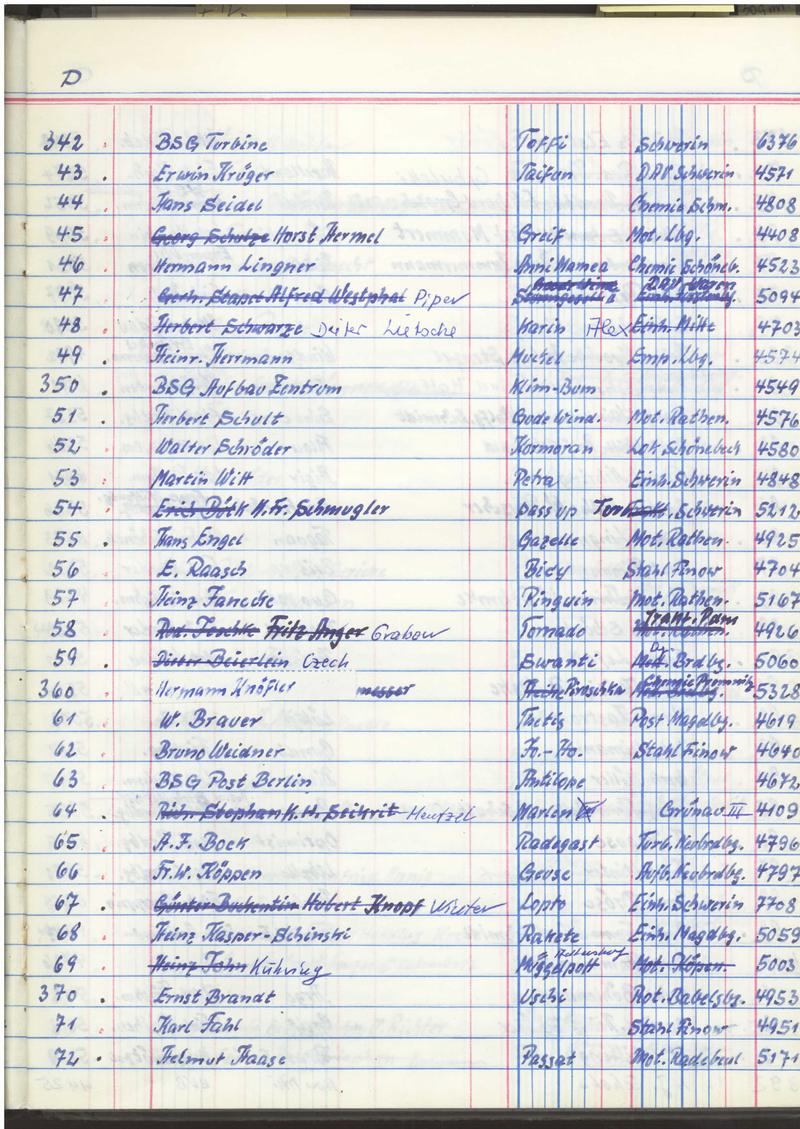 D
342 . BSG Turbine Toffi Schwerin 6376
43 . Erwin Krüger Taifun DAV Schwerin 4571
44 . Hans Seidel Chemie Schw. 4808
45 . Georg Schulze Horst Hermel Greif Mot. Lbg. 4408
46 . Hermann Lingner Anni Mamea Chemie Schöneb. 4523
47 . Gerh. Stapel Alfred Westphal Piper 5094
48 . Herbert Schwarze Deiter Lietsche Karin Alex Einh. Mitte 4703
49 . Heinr. Herrmann Muckel Emp. Lbg. 4574
350 . BSG Aufbau Zentrum Klim-Bum 4549
51 . Herbert Schult Gode Wind. Mot. Rathen. 4576
52 . Walter Schröder Kormoran Lok Schönebeck 4580
53 . Martin Witt Petra Einh. Schwerin 4848
54 . Erich Bölk H. Fr. Schmugler Pass up Schwerin 5212
55 . Hans Engel Gazelle Mot. Rathen. 4925
56 . E. Raasch Bidy Stahl Finow 4704
57 . Heinz Fanecke Pinguin Mot. Rathen. 5167
58 . Rud. Jeschke Fritz Anger Grabow Tornado 4926
59 . Dieter Beierlein Czech Swanti Brdbg. 5060
360 . Hermann Knöfler messer Piroschka Chemie Premnitz 5328
61 . W. Brauer Thetis Post Magdbg. 4619
62 . Bruno Weidner Jo.-Ho. Stahl Finow 4640
63 . BSG Post Berlin Antilope 4672
64 . Rich. Stephan K. H. Seikrit Hentzel Marlen Grünau III 4109
65 . A. F. Bock Radegast Turb. Neubrdbg. 4796
66 . Fr. W. Köppen Geuse Aufb. Neubrdbg. 4797
67 . Günter Buckentin Hubert Knopf Winter Lopto Einh. Schwerin 7708
68 . Heinz Kasper-Schinski Rakete Einh. Magdbg. 5059
69 . Heinz John Kühring Müggelpott Mot. Köpen. 5003
370 . Ernst Brandt Uschi Rot. Babelsbg. 4953
71 . Karl Fahl Stahl Finow 4951
72 . Helmut Haase Passat Mot. Radebeul 5171